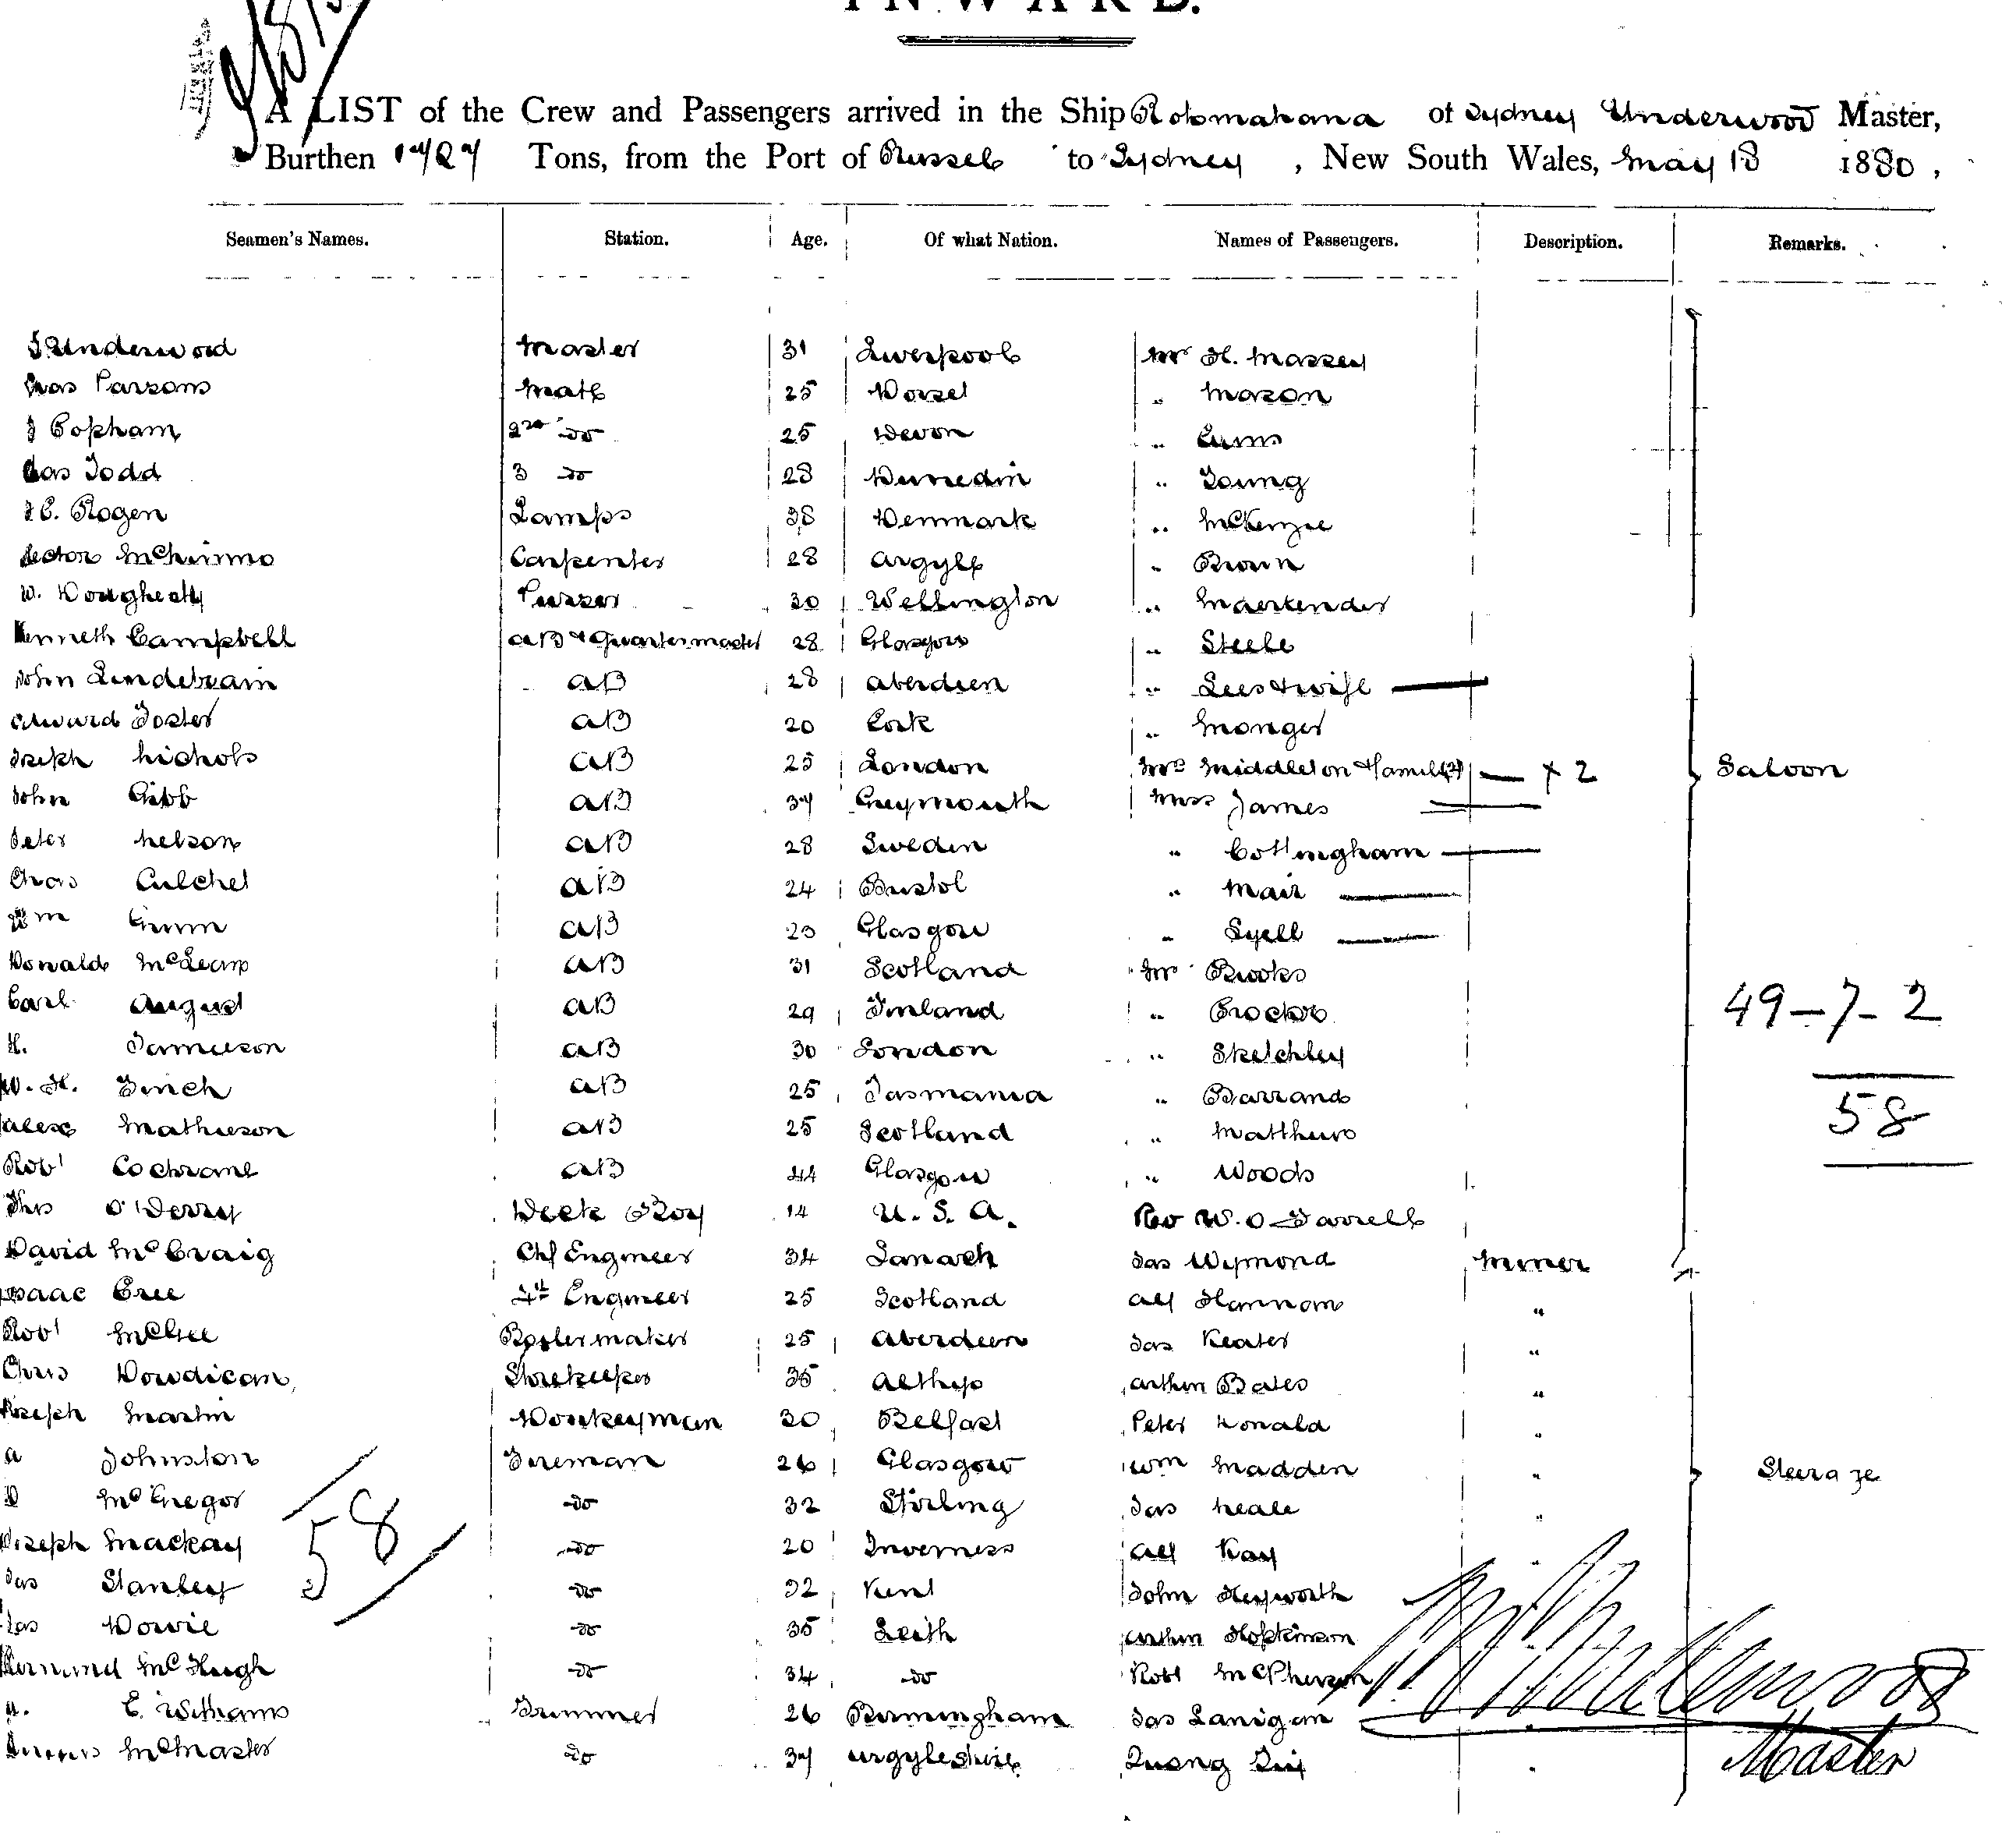 INWARD.
A LIST of the Crew and Passengers arrived in the Ship Rotomahana of Sydney Underwood Master,
Burthen 1727 Tons, from the Port of Russell to Sydney, New South Wales, May 18 1880,
Seamen's Names. Station. Age. Of what Nation. Names of Passengers. Description. Remarks.
Underwood Master 31 Liverpool Mr H. Massey
Parsons Mate 25 Mason
J Popham 2nd do 25 Devon
Todd 3 do 28 Dunedin " Young
Rogen Lamps 38 Denmark " McKenzie
Carpenter 28 Argyle " Brown
W. Purser 30 Wellington "
Kenneth Campbell AB & Quartermaster 28 Glasgow " Steele
John AB 28 Aberdeen " Lees & wife
Edward Foster AB 20 Cork " Monger
Joseph Nichols AB 25 London Mrs Middleton & family (2) x 2 Saloon
John Gibb AB 37 Greymouth Miss James
Peter Nelson AB 28 Sweden " Cottingham
Chas AB 24 Bristol " Mair
Wm Gunn AB 23 Glasgow " Lyell
Donald McLean AB 31 Scotland Mr Brooks
Carl August AB 29 Finland " Proctor 49-7-2
H. Jamieson AB 30 London " Sketchley
W. H. Finch AB 25 Tasmania " Barrand
Alex Mathieson AB 25 Scotland " Matthews 58
Robt Cochrane AB 44 Glasgow " Woods
Thos O'Derry Deck Boy 14 U.S.A. Rev W. O Farrell
David McCraig Chf Engineer 34 Lanark Jas Wymond Miner
Isaac Cree 4th Engineer 25 Scotland Alf Hannam "
Robt McGhee Boilermaker 25 Aberdeen Jas Keater "
Chris Dowdican Storekeeper 35 Arthur Bates "
Joseph Martin Donkeyman 30 Belfast Peter Donald "
A Johnston Fireman 26 Glasgow Wm Madden " Steerage
D McGregor do 32 Stirling Jas Neale "
Joseph Mackay do 20 Inverness Alf Kay "
58
Jas Stanley do 32 Kent John Heyworth
Jas Dowie do 35 Leith Arthur Hopkinson
McHugh do 34 do Robt McPherson
E. Williams Trimmer 26 Birmingham Jas Lanigan
McMaster do 37 Argyleshire Quong
Underwood
Master